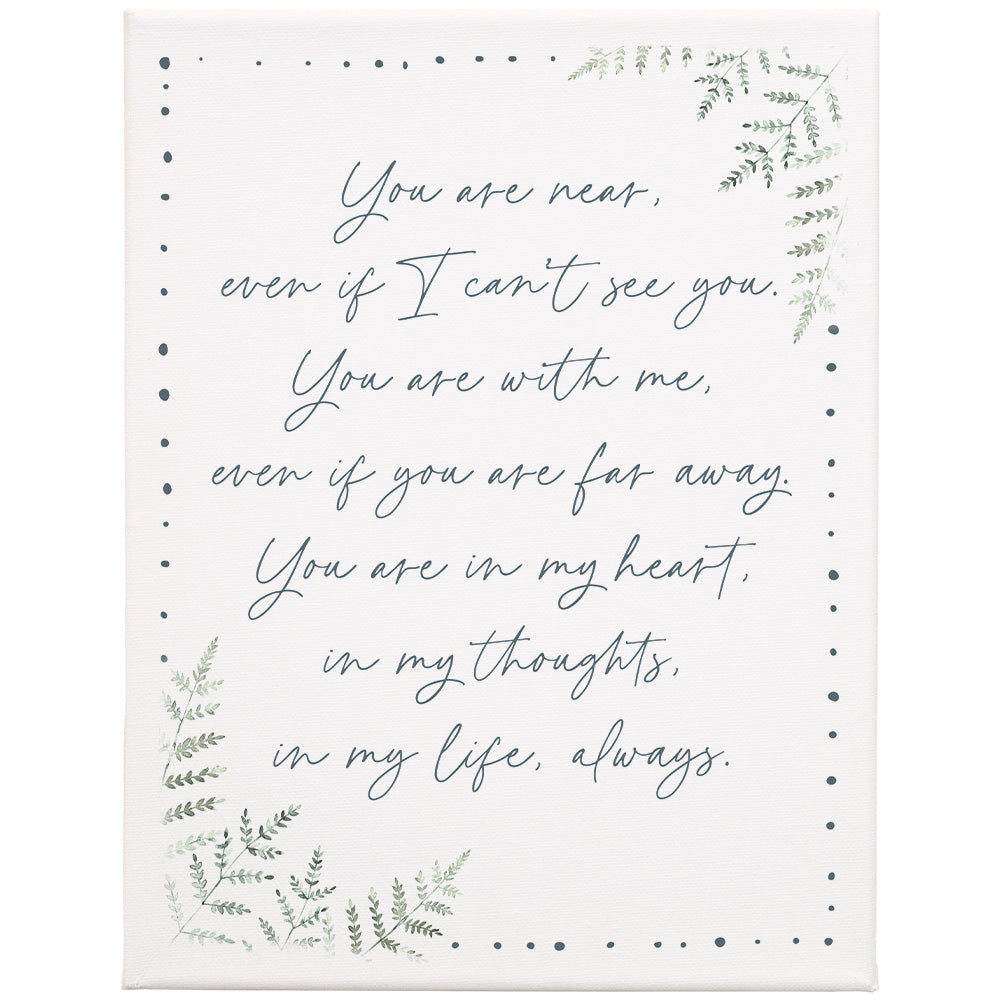 You are near,
even if I can't see you.
You are with me,
even if you are far away.
You are in my heart,
in my thoughts,
in my life, always.